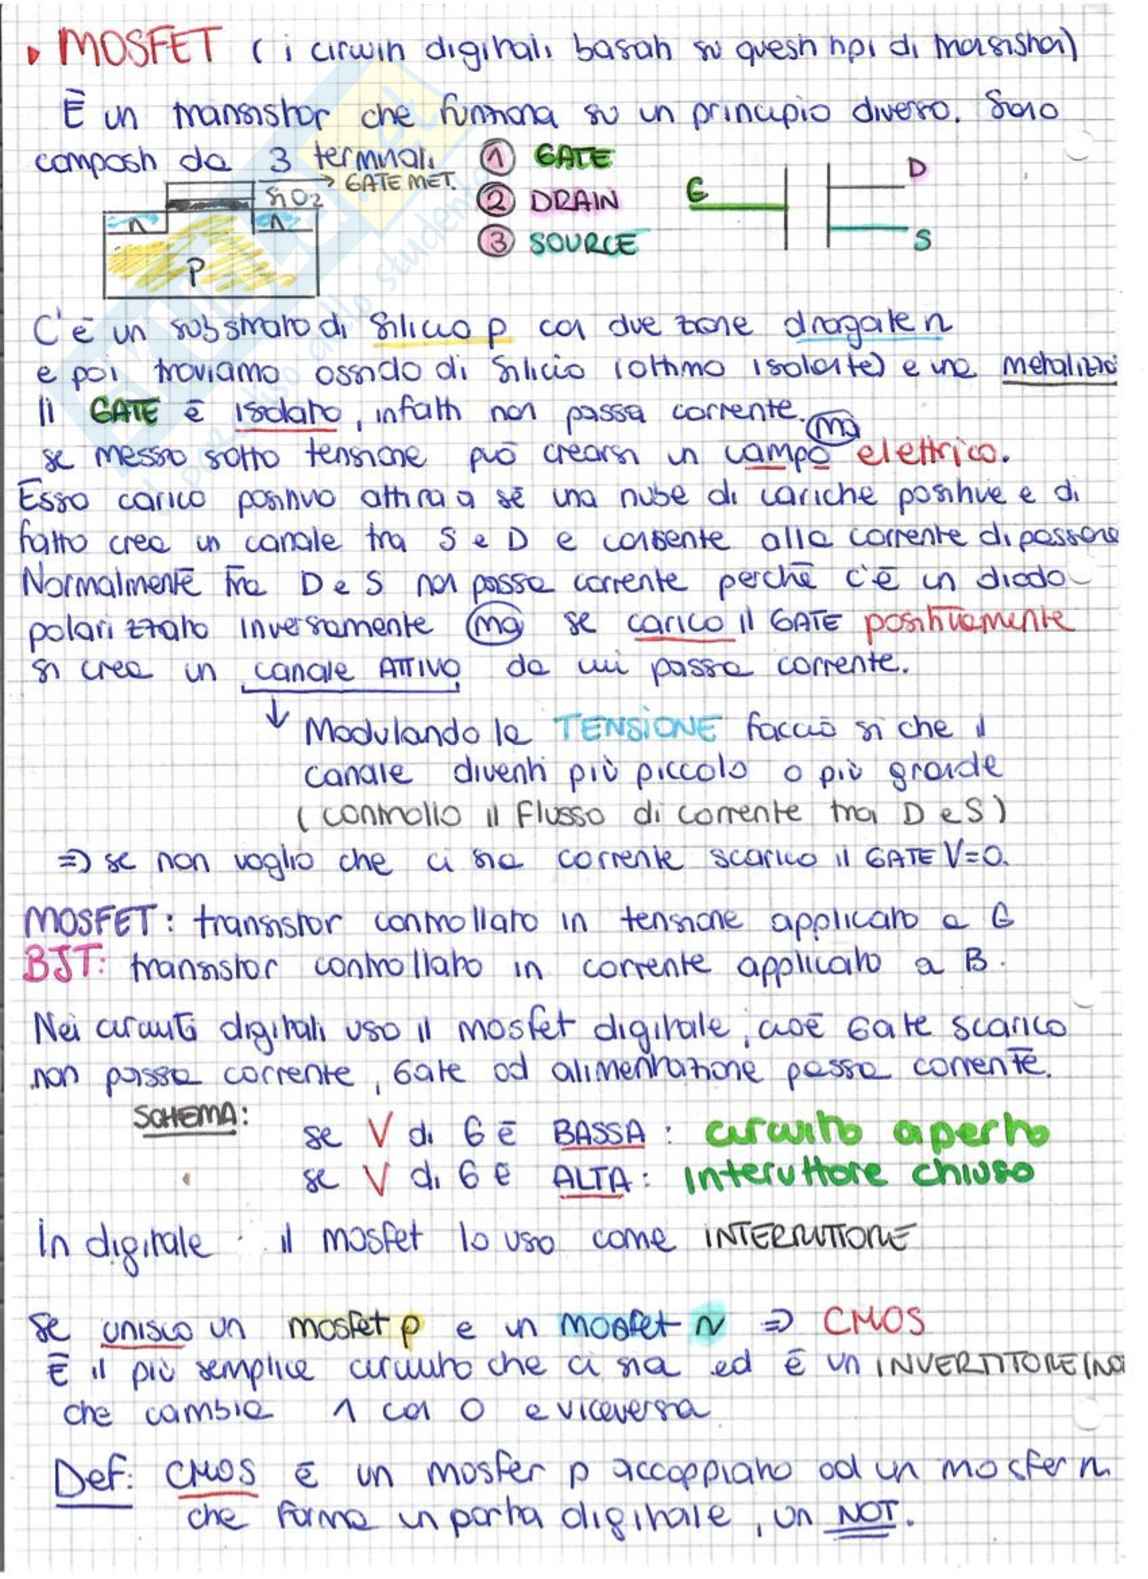 • MOSFET ( i circuiti digitali basati su questi tipi di transistor)
È un transistor che funziona su un principio diverso. Sono
composti da 3 terminali
① GATE
② DRAIN
③ SOURCE
GATE MET.
SiO2
n n
P
G
D
S
C'è un substrato di silicio p con due zone drogate n
e poi troviamo ossido di silicio (ottimo isolante) e una metalizzo
Il GATE è isolato, infatti non passa corrente. ma
se messo sotto tensione può crearsi un campo elettrico.
Esso carico positivo attira a sé una nube di cariche positive e di
fatto crea un canale tra S e D e consente alla corrente di passare
Normalmente tra D e S non passa corrente perché c'è un diodo
polarizzato inversamente ma se carico il GATE positivamente
si crea un canale ATTIVO da cui passa corrente.
↓ Modulando la TENSIONE faccio si che il
canale diventi più piccolo o più grande
( controllo il flusso di corrente tra D e S )
=) se non voglio che ci sia corrente scarico il GATE V=0.
MOSFET: transistor controllato in tensione applicato a G
BJT: transistor controllato in corrente applicato a B.
Nei circuiti digitali uso il mosfet digitale, cioè Gate scarico
non passa corrente, Gate ad alimentazione passa corrente.
SCHEMA:
se V di G è BASSA : circuito aperto
se V di G è ALTA : interuttore chiuso
In digitale il mosfet lo uso come INTERRUTTORE
Se unisco un mosfet p e un mosfet N => CMOS
È il più semplice circuito che ci sia ed è un INVERTITORE (NO
che cambia 1 con 0 e viceversa
Def: CMOS è un mosfet p accoppiato ad un mosfet n
che forma un porta digitale, un NOT.